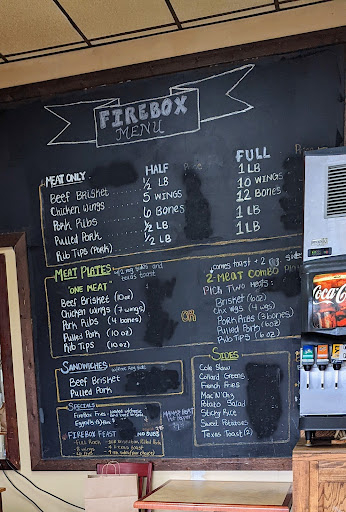 FIREBOX
MENU
MEAT ONLY
HALF
FULL
Beef Brisket ½ LB 1 LB
Chicken Wings 5 WINGS 10 WINGS
Pork Ribs 6 Bones 12 Bones
Pulled Pork ½ LB 1 LB
Rib Tips (Pork) ½ LB 1 LB
MEAT PLATES w/ 2 sides and texas toast
"ONE MEAT"
Beef Brisket (10oz)
Chicken Wings (7 wings)
Pork Ribs (4 bones)
Pulled Pork (10 oz)
Rib Tips (10 oz)
comes toast + 2
2-MEAT COMBO
Pick Two Meats:
Brisket (6oz)
Chx wgs (4 wgs)
Pork Ribs (3 bones)
Pulled Pork (6oz)
Rib Tips (6 oz)
SANDWICHES
Beef Brisket
Pulled Pork
SPECIALS
Firebox Fries
FIREBOX FEAST NO SUBS
SIDES
Cole Slaw
Collard Greens
French Fries
Mac 'N' Chz
Potato Salad
Sticky Rice
Sweet Potatoes
Texas Toast (2)
Coca-Cola